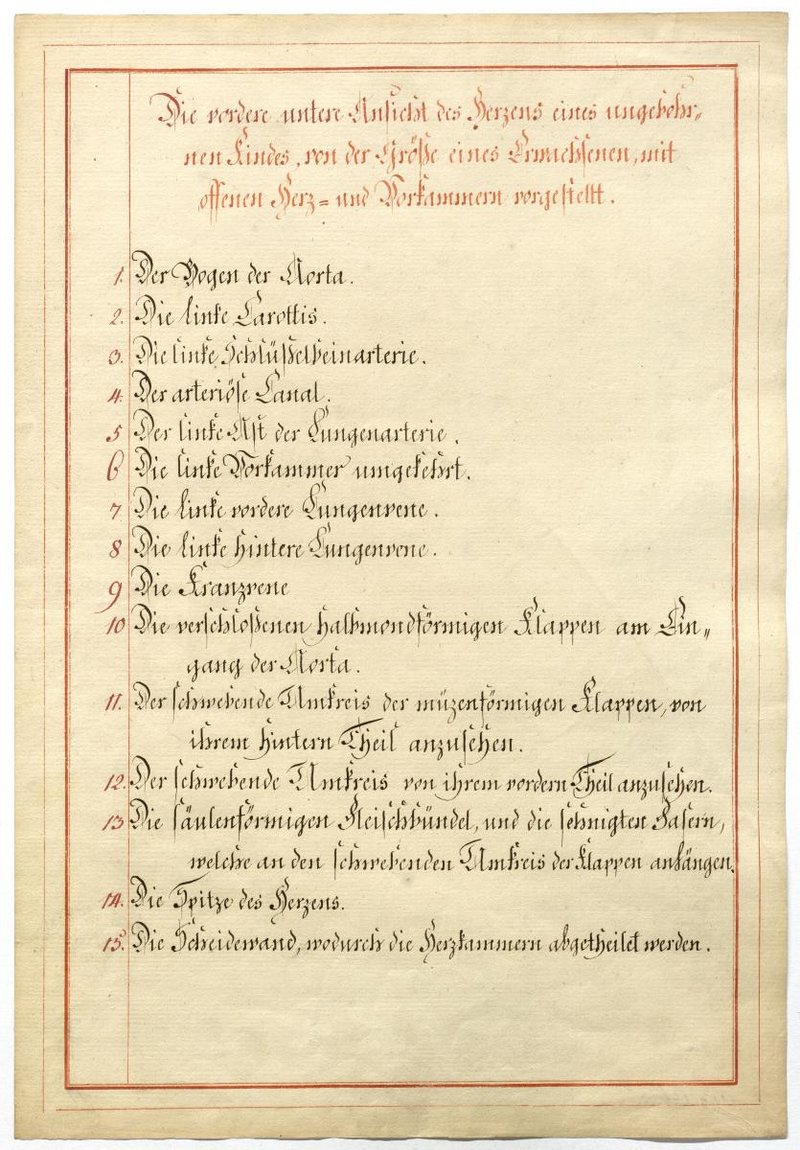 Die vordere untere Ansicht des Herzens eines ungebohr„
nen Kindes, von der Größe eines Erwachsenen, mit
offenen Herz= und Vorkammern vorgestellt.
1. Der Bogen der Aorta.
2. Die linke Carottis.
3. Die linke Schlüßelbeinarterie.
4. Der arteriöse Canal.
5 Der linke Ast der Lungenarterie.
6 Die linke Vorkammer umgekehrt.
7 Die linke vordere Lungenvene.
8 Die linke hintere Lungenvene.
9 Die Kranzvene
10 Die verschloßenen halbmondförmigen Klappen am Ein„
gang der Aorta.
11. Der schwebende Umkreis der müzenförmigen Klappen, von
ihrem hintern Theil anzusehen.
12. Der schwebende Umkreis von ihrem vordern Theil anzusehen.
13 Die säulenförmigen Fleischbündel, und die sehnigten Fasern,
welche an den schwebenden Umkreis der Klappen anhängen.
14. Die Spitze des Herzens.
15. Die Scheidewand, wodurch die Herzkammern abgetheilet werden.